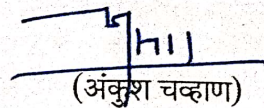 (अंकुश चव्हाण)